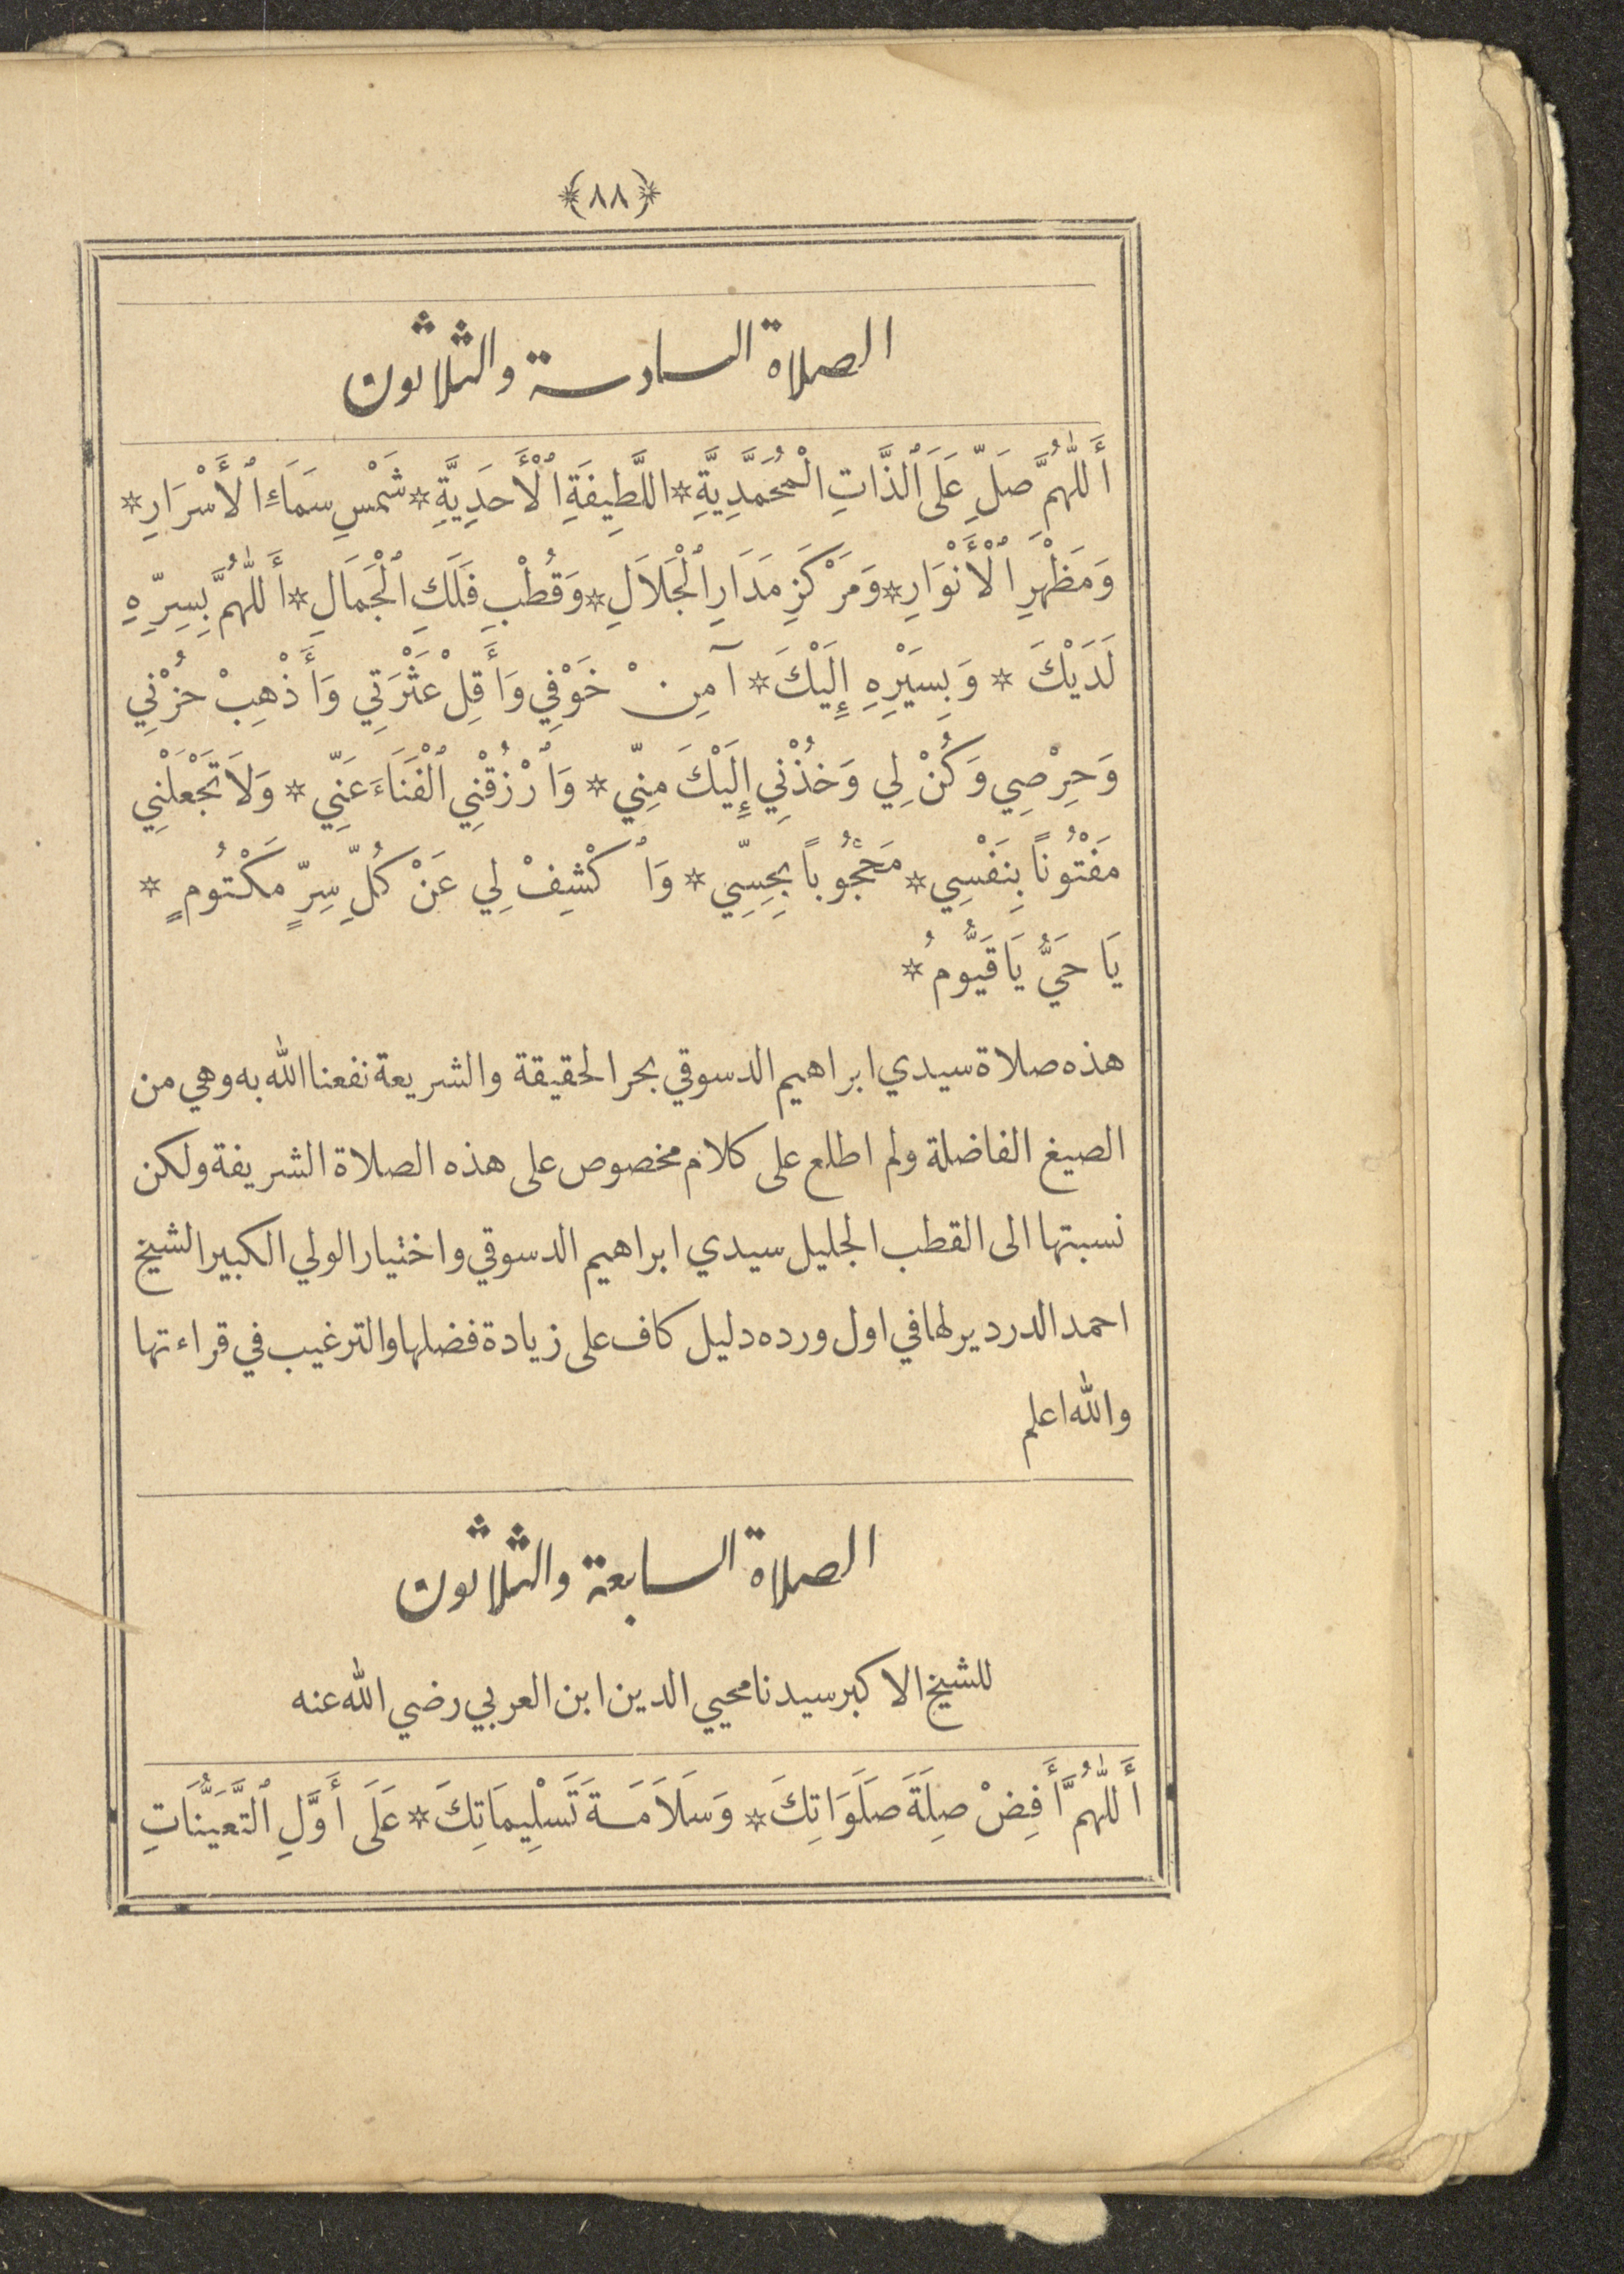 ﴿٨٨﴾
الصلاة السادسة والثلاثون
أَللّٰهُمَّ صَلِّ عَلَى ٱلذَّاتِ الْمُحَمَّدِيَّةِ * اللَّطِيفَةِ ٱلْأَحَدِيَّةِ * شَمْسِ سَمَاءِ ٱلْأَسْرَارِ *
وَمَظْهَرِ ٱلْأَنْوَارِ * وَمَرْكَزِ مَدَارِ ٱلْجَلاَلِ * وَقُطْبِ فَلَكِ ٱلْجَمَالِ * أَللّٰهُمَّ بِسِرِّهِ
لَدَيْكَ * وَبِسَيْرِهِ إِلَيْكَ * آمِنْ خَوْفِي وَأَقِلْ عَثْرَتِي وَأَذْهِبْ حُزْنِي
وَحِرْصِي وَكُنْ لِي وَخُذْنِي إِلَيْكَ مِنِّي * وَٱرْزُقْنِي ٱلْفَنَاءَ عَنِّي * وَلاَ تَجْعَلْنِي
مَفْتُوناً بِنَفْسِي * مَحْجُوباً بِحِسِّي * وَٱكْشِفْ لِي عَنْ كُلِّ سِرٍّ مَكْتُومٍ *
يَا حَيُّ يَا قَيُّومُ *
هذه صلاة سيدي ابراهيم الدسوقي بحر الحقيقة والشريعة نفعنا الله به وهي من
الصيغ الفاضلة ولم اطلع على كلام مخصوص على هذه الصلاة الشريفة ولكن
نسبتها الى القطب الجليل سيدي ابراهيم الدسوقي واختيار الولي الكبير الشيخ
احمد الدردير لها في اول ورده دليل كاف على زيادة فضلها والترغيب في قراءتها
والله اعلم
الصلاة السابعة والثلاثون
للشيخ الاكبر سيدنا محيي الدين ابن العربي رضي الله عنه
أَللّٰهُمَّ أَفِضْ صِلَةَ صَلَوَاتِكَ * وَسَلاَمَةَ تَسْلِيمَاتِكَ * عَلَى أَوَّلِ ٱلتَّعَيُّنَاتِ